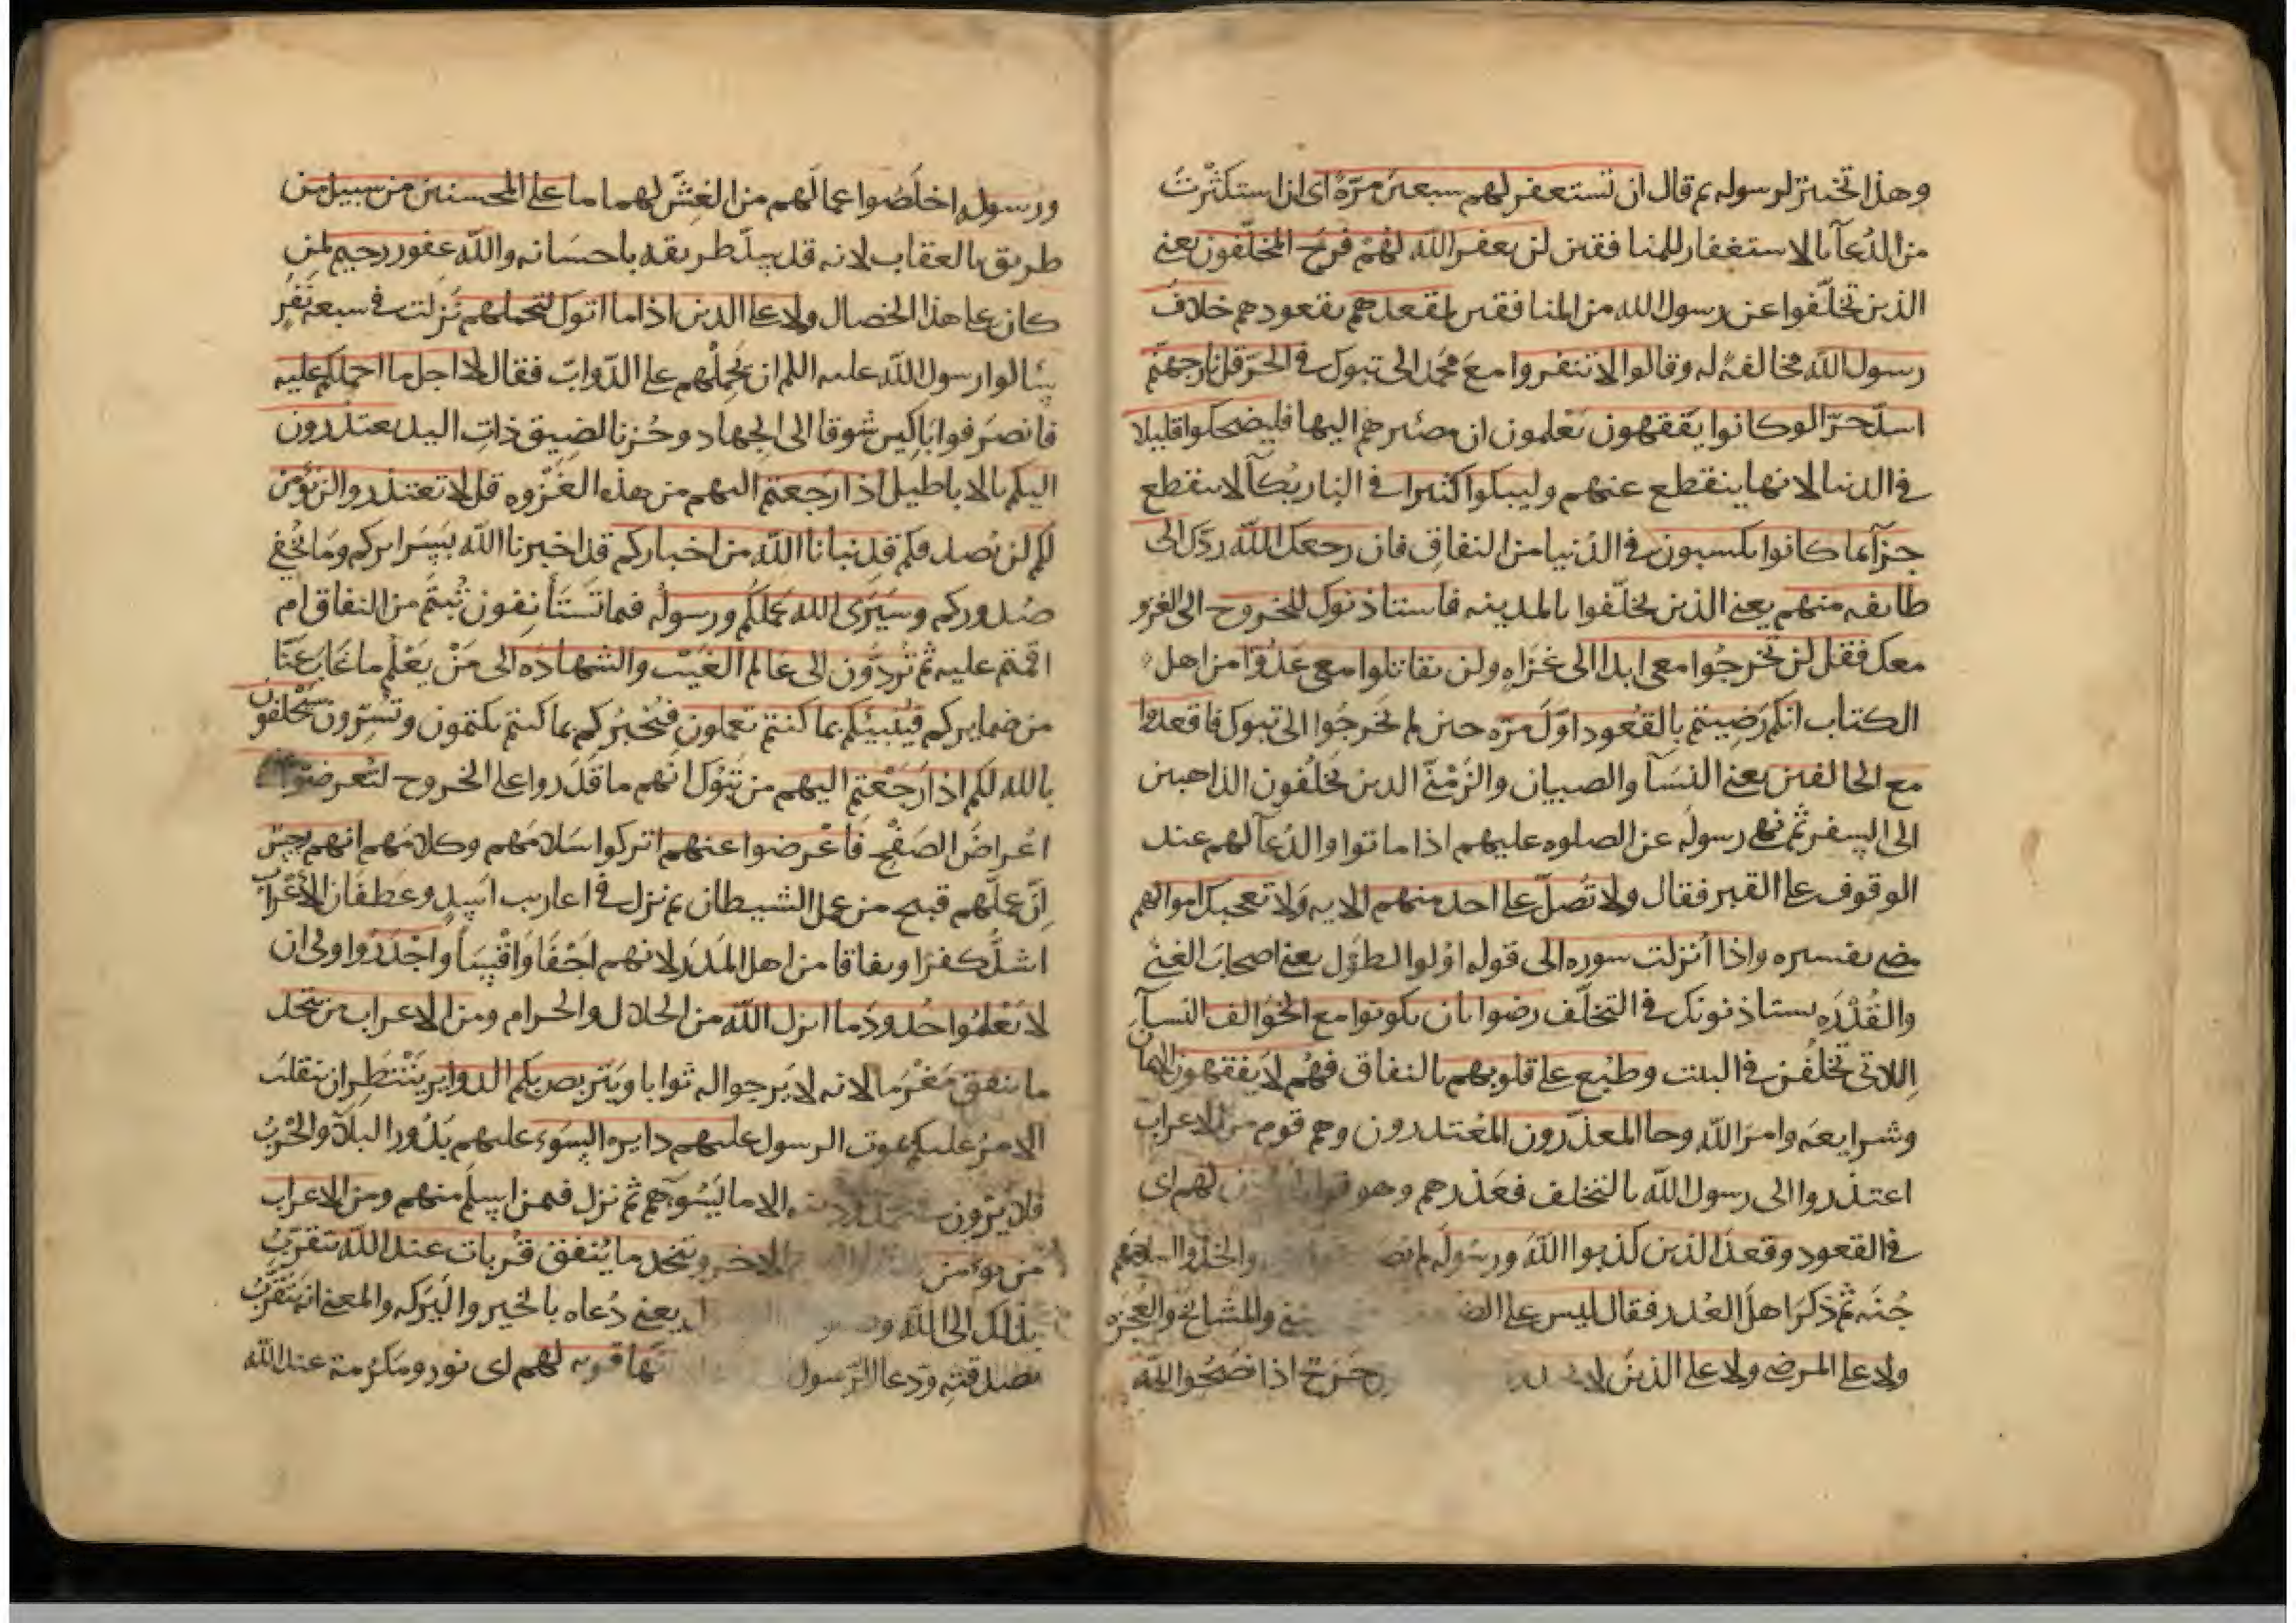 وهذا تخيير لرسوله ثم قال ان تستغفر لهم سبعين مرّة اى ان استكثرت
من الدُعآ بالاستغفار للمنافقين لن يغفر الله لهم فرح المخلّفون يعنى
الذين تخلّفوا عن رسول الله من المنافقين بمقعدهم بقعودهم خلاف
رسول الله مخالفةً له وقالوا لا تنفروا مع محمد الى تبوك فى الحرّ قل نار جهنّم
اشدّ حرّا لو كانوا يفقهون يعلمون ان مصيرهم اليها فليضحكوا قليلا
فى الدنيا لانها ينقطع عنهم وليبكوا كثيرا فى النار بُكآ لا ينقطع
جزآ بما كانوا يكسبون فى الدُنيا من النفاق فان رجعك الله ردّك الى
طايفه منهم يعنى الذين تخلّفوا بالمدينه فاستاذنوك للخروج الى الغزو
معك فقل لن تخرجُوا معى ابدا الى غزاه ولن تقاتلوا معى عدُوّا من اهل
الكتاب انكم رَضِيتم بالقُعود اوّل مرّه حين لم تخرجُوا الى تبوك فاقعدوا
مع الخالفين يعنى النسَآ والصبيان والزَمْنَى الذين يَخلُفون الذاهبين
الى السفر ثم نهى رسولَه عن الصلوه عليهم اذا ماتوا والدُعآ لهم عند
الوقوف على القبر فقال ولا تُصلّ على احد منهم الايه ولا تعجبك اموالهم
مضى تفسيره واذا اُنزلت سوره الى قوله اوُلوا الطَول يعنى اصحابَ الغنى
والقُدْرَه يستاذنونك فى التخلّف رضوا بان يكونوا مع الخوَالف النسآ
اللاتى تخلُفن فى البيت وطُبع على قلوبهم بالنفاق فهُم لا يفقهون الايمان
وشرايعه وامرَ الله وجا المعذّرون المُعتذرون وهم قوم من الاعراب
اعتذروا الى رسول الله بالتخلف فعَذَرهم وهو قوله ليُؤذن لهم اى
فى القعود وقعدَ الذين كذبوا الله ورسُولَه لم والسلاحُهم
جُنّه ثم ذكرَ اهلَ العُذر فقال ليس على والمشايخ والعجَزه
ولا على المرضى ولا على الذين لا حَرَج اذا نصَحُوا لله
ورسولِه اخلَصُوا اعمالَهم من الغِشّ لهما ما على المحسنين من سبيل من
طريق بالعقاب لانه قد سدّ طريقه باحسَانه والله غفور رحيم لمن
كان على هذا الخصال ولا على الذين اذا ما اتوك لتحملهم نَزَلت فى سبعه نَفَرٍ
سَالوا رسول الله عليه اللم ان يَحْمِلَهم على الدّوابّ فقال لا اجد ما احملكم عليه
فانصَرفوا بَاكِين شوقا الى الجهاد وحُزنا لضيق ذاتِ اليد يعتذرون
اليكم بالاباطيل اذا رَجعتم اليهم من هذه الغَزْوه قل لا تعتذروا لن نؤمن
لكم لن نُصدقكم قد نبانا الله من اخباركم قد اخبرنا الله بسَرايركم ومَا تُخفى
صُدوركم وسَيَرَى الله عَملَكُم ورسولُه فيما تَستَأنِفون تُبْتُم من النفاق ام
اقمتم عليه ثم تُردُّون الى عَالم الغَيْب والشهادَه الى مَنْ يَعْلَم ما غابَ عنّا
من ضمايركم فيُنَبِّئكم بما كنتم تعملون فيُخبُركم بما كنتم تكتمون وتُسِرّون سَيَحْلفون
بالله لكم اذا رَجَعْتم اليهم من تَبُوك انّهم ما قَدَروا على الخروج لتُعرضوا
اعْراضَ الصَفْح فَاَعْرضوا عنهم اتركوا سَلامَهم وكلامَهم انهم رجس
اِنّ عملَهم قبيح من عمل الشيطان ثم نزل فى اعاريب اسَدٍ وغطَفَان الاَعْرابُ
اشدُّ كفرا ونفاقا من اهل المَدَر لانهم اَجْفَا وَاَقْسَا واَجْدَرُ اولى ان
لا يَعْلَمُوا حُدودَ ما انزل الله من الحلال والحرام ومن الاعراب من يتخذ
ما ينفق مَغْرَما لانه لا يَرجوا له ثوابا ويَتربص بكم الدوايرَ يَنْتَظِر ان ينقلبَ
الامرُ عليكم بموت الرسول عليهم دايره السَوء عليهم يَدُور البلآ والحُزنُ
فلا يَرَون الا ما يَسُوءهم ثم نزل فيمن اسلَم منهم ومن الاعراب
من يؤمن الاخر ويتخذ ما يُنفق قُربات عند الله يتقرّب
بذلك الى الله يعنى دُعاه بالخير والبَرَكه والمعنى انه يَتقرّبُ
بصدقته ودعا الرّسول قربه لهم اى نور ومَكرُمة عند الله